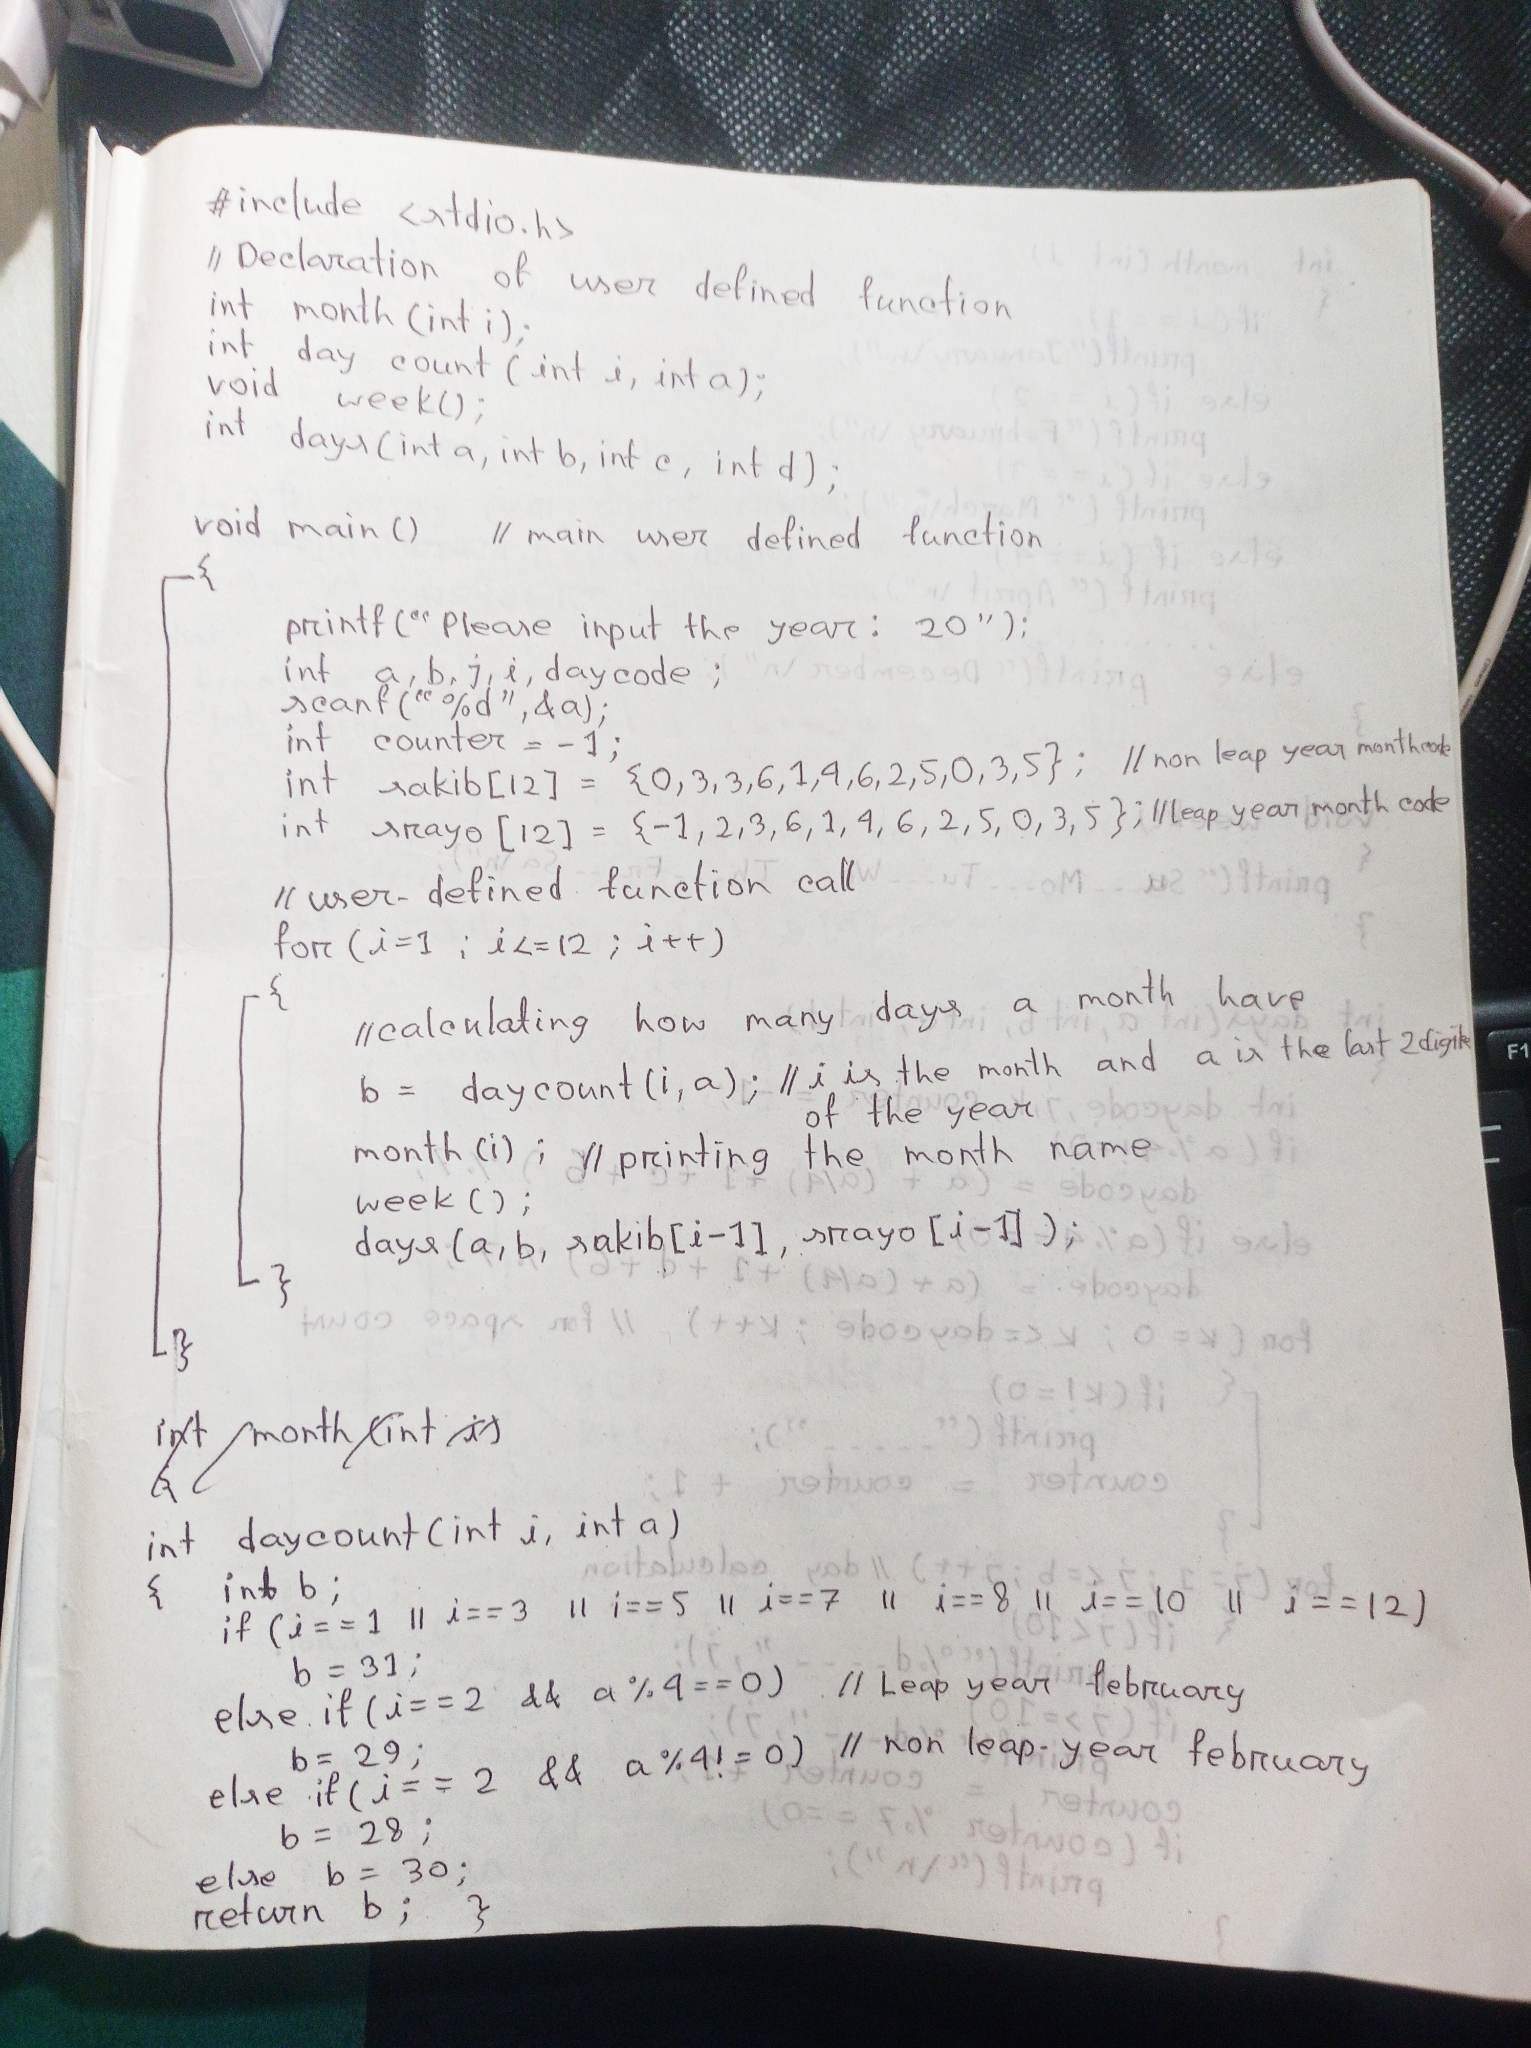 #include <stdio.h>
// Declaration of user defined function
int month (int i);
int day count (int i, int a);
void week();
int days (int a, int b, int c, int d);
void main () // main user defined function
{
printf ("Please input the year: 20");
int a, b, j, i, daycode ;
scanf ("%d", &a);
int counter = -1;
int sakib[12] = {0,3,3,6,1,4,6,2,5,0,3,5}; // non leap year monthcode
int srayo [12] = {-1,2,3,6,1,4,6,2,5,0,3,5}; // leap year month code
// user-defined function call
for (i=1 ; i<=12 ; i++)
{
//calculating how many days a month have
b = daycount (i, a); // i is the month and a is the last 2 digits
of the year
month (i) ; // printing the month name
week () ;
days (a, b, sakib[i-1], srayo [i-1] );
}
}
int month (int i)
{
int daycount (int i, int a)
{ int b ;
if (i==1 || i==3 || i==5 || i==7 || i==8 || i==10 || i==12)
b = 31;
else if (i==2 && a%4==0) // Leap year february
b = 29;
else if (i==2 && a%4!=0) // non leap-year february
b = 28 ;
else b = 30;
return b ; }
F1